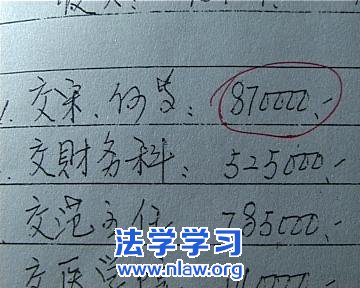 交宋、何等:870000.-
交財务科:525000.-
交范主任 785000.-
交医学
法学学习
www.nlaw.org